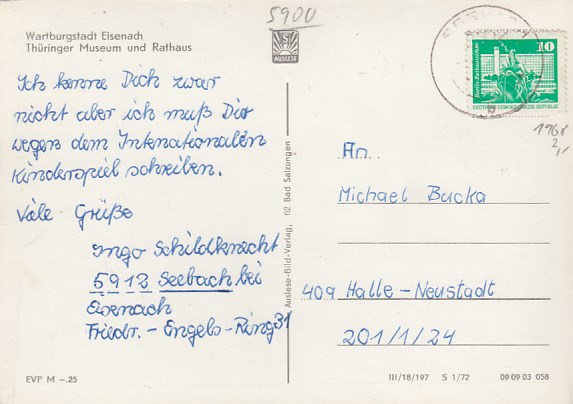 5900
Wartburgstadt Eisenach
Thüringer Museum und Rathaus
AUSLESE
10
DEUTSCHE DEMOKRATISCHE REPUBLIK
Ich kenne Dich zwar
nicht aber ich muß Dir
wegen dem Internationalen
Kinderspiel schreiben.
Viele Grüße
Ingo Schildknecht
5912 Seebach bei
Eisenach
Friedr.-Engels-Ring 31
Auslese-Bild-Verlag, 612 Bad Salzungen
1968
2,-
An
Michael Bucka
409 Halle-Neustadt
201/1/24
EVP M -.25
III/18/197 S 1/72 09 09 03 058